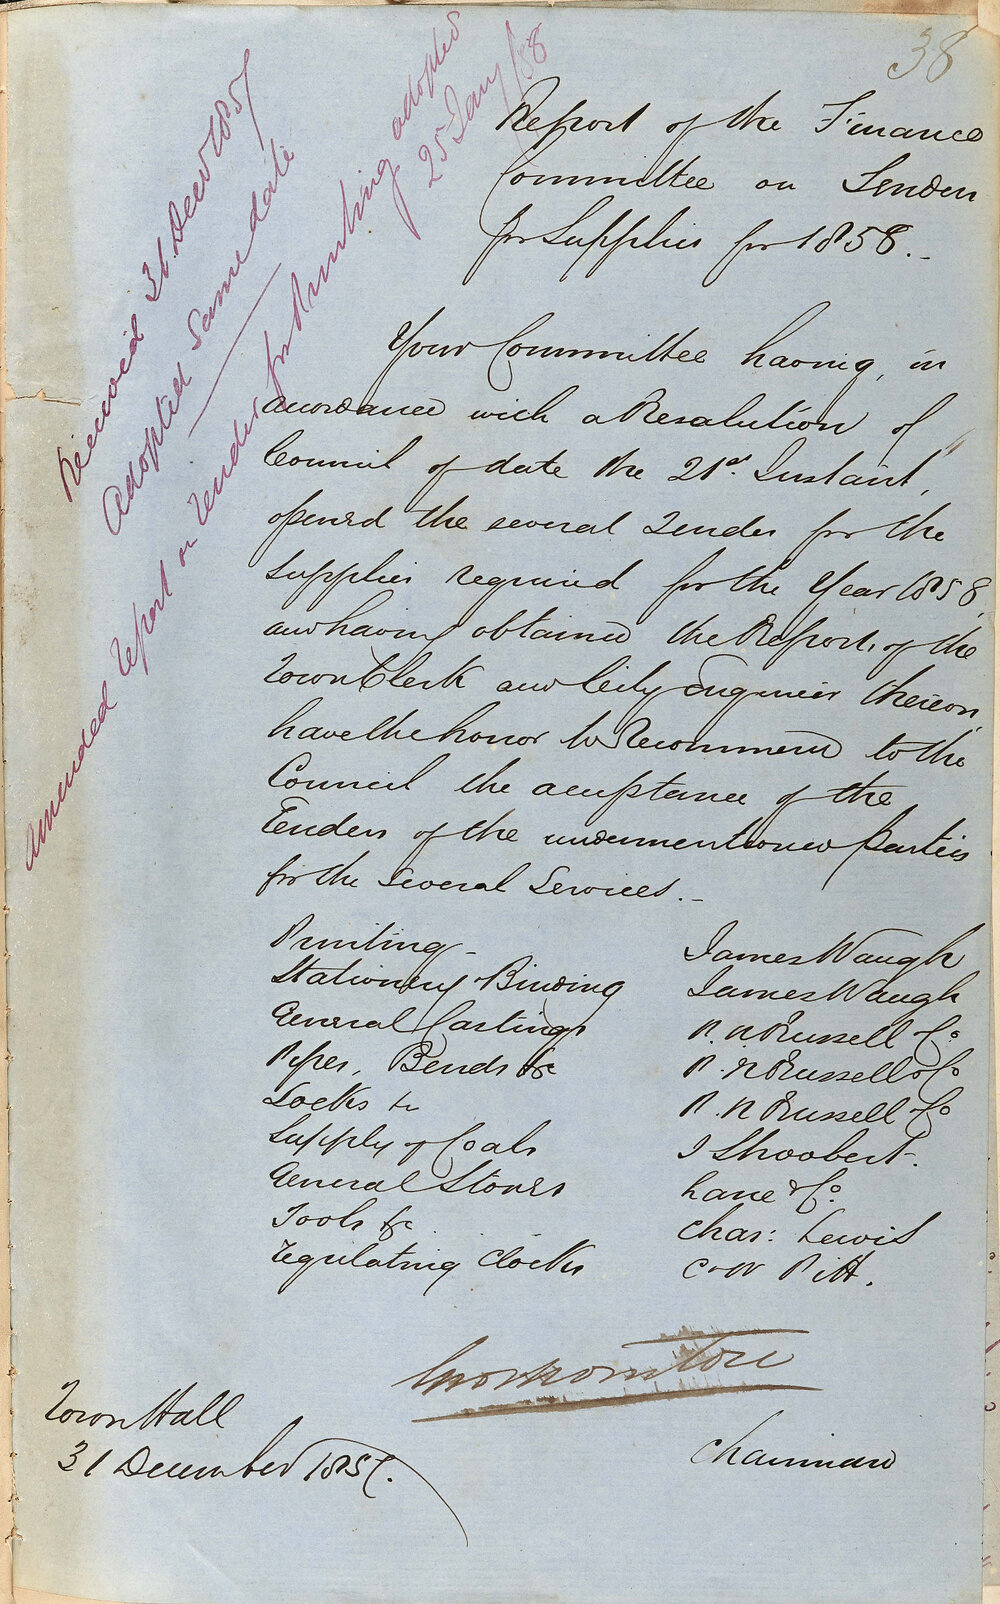 38
Received 31 Decr 1857
Adopted Same date
Amended Report on Tender for Printing adopted
25 Jany /58
Report of the Finance
Committee on Tenders
for Supplies for 1858.-
Your Committee having, in
accordance with a Resolution of
Council of date the 21st. Instant,
opened the several Tenders for the
Supplies required for the Year 1858,
and having obtained the Report of the
Town Clerk and City Engineer thereon,
have the honor to Recommend to the
Council the acceptance of the
Tenders of the undermentioned Parties
for the Several Services.-
Printing- James Waugh
Stationery & Binding James Waugh
General Castings P. N. Russell & Co
Pipes, Bends &c P. N. Russell & Co
Locks &c P. N. Russell & Co
Supply of Coals J Shoobert.
General Stores Lane & Co.
Tools &c Chas: Lewis
regulating Clocks C & W Pitt.
Town Hall
31 December 1857.
Chairman